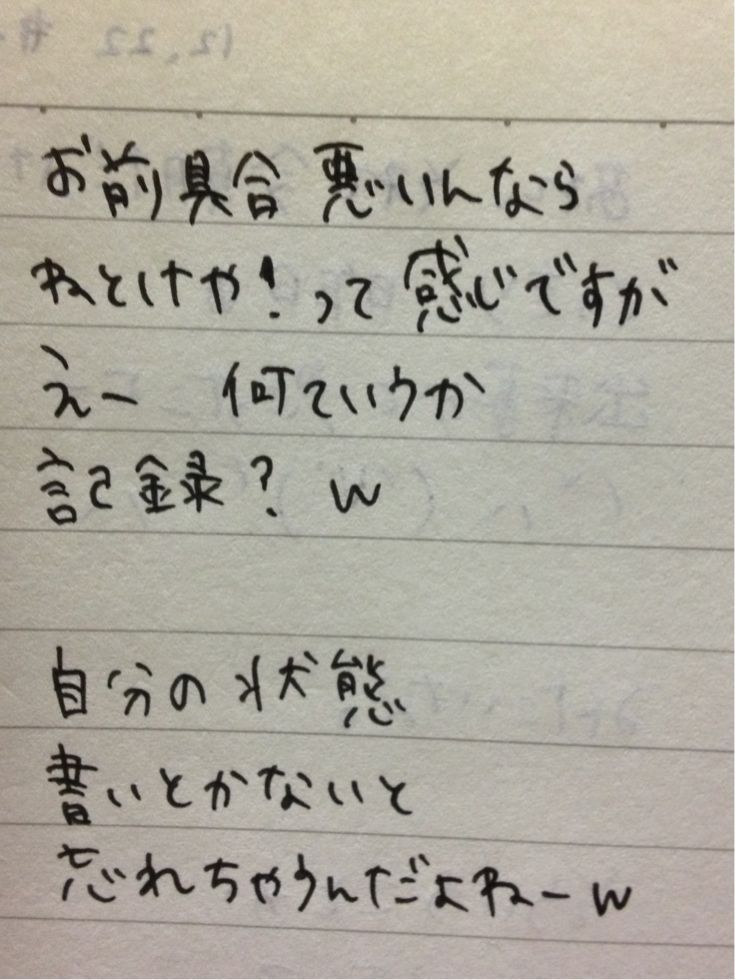 お前具合悪いんなら
ねとけや!って感じですが
えー 何ていうか
記録?w
自分の状態
書いとかないと
忘れちゃうんだよねーw